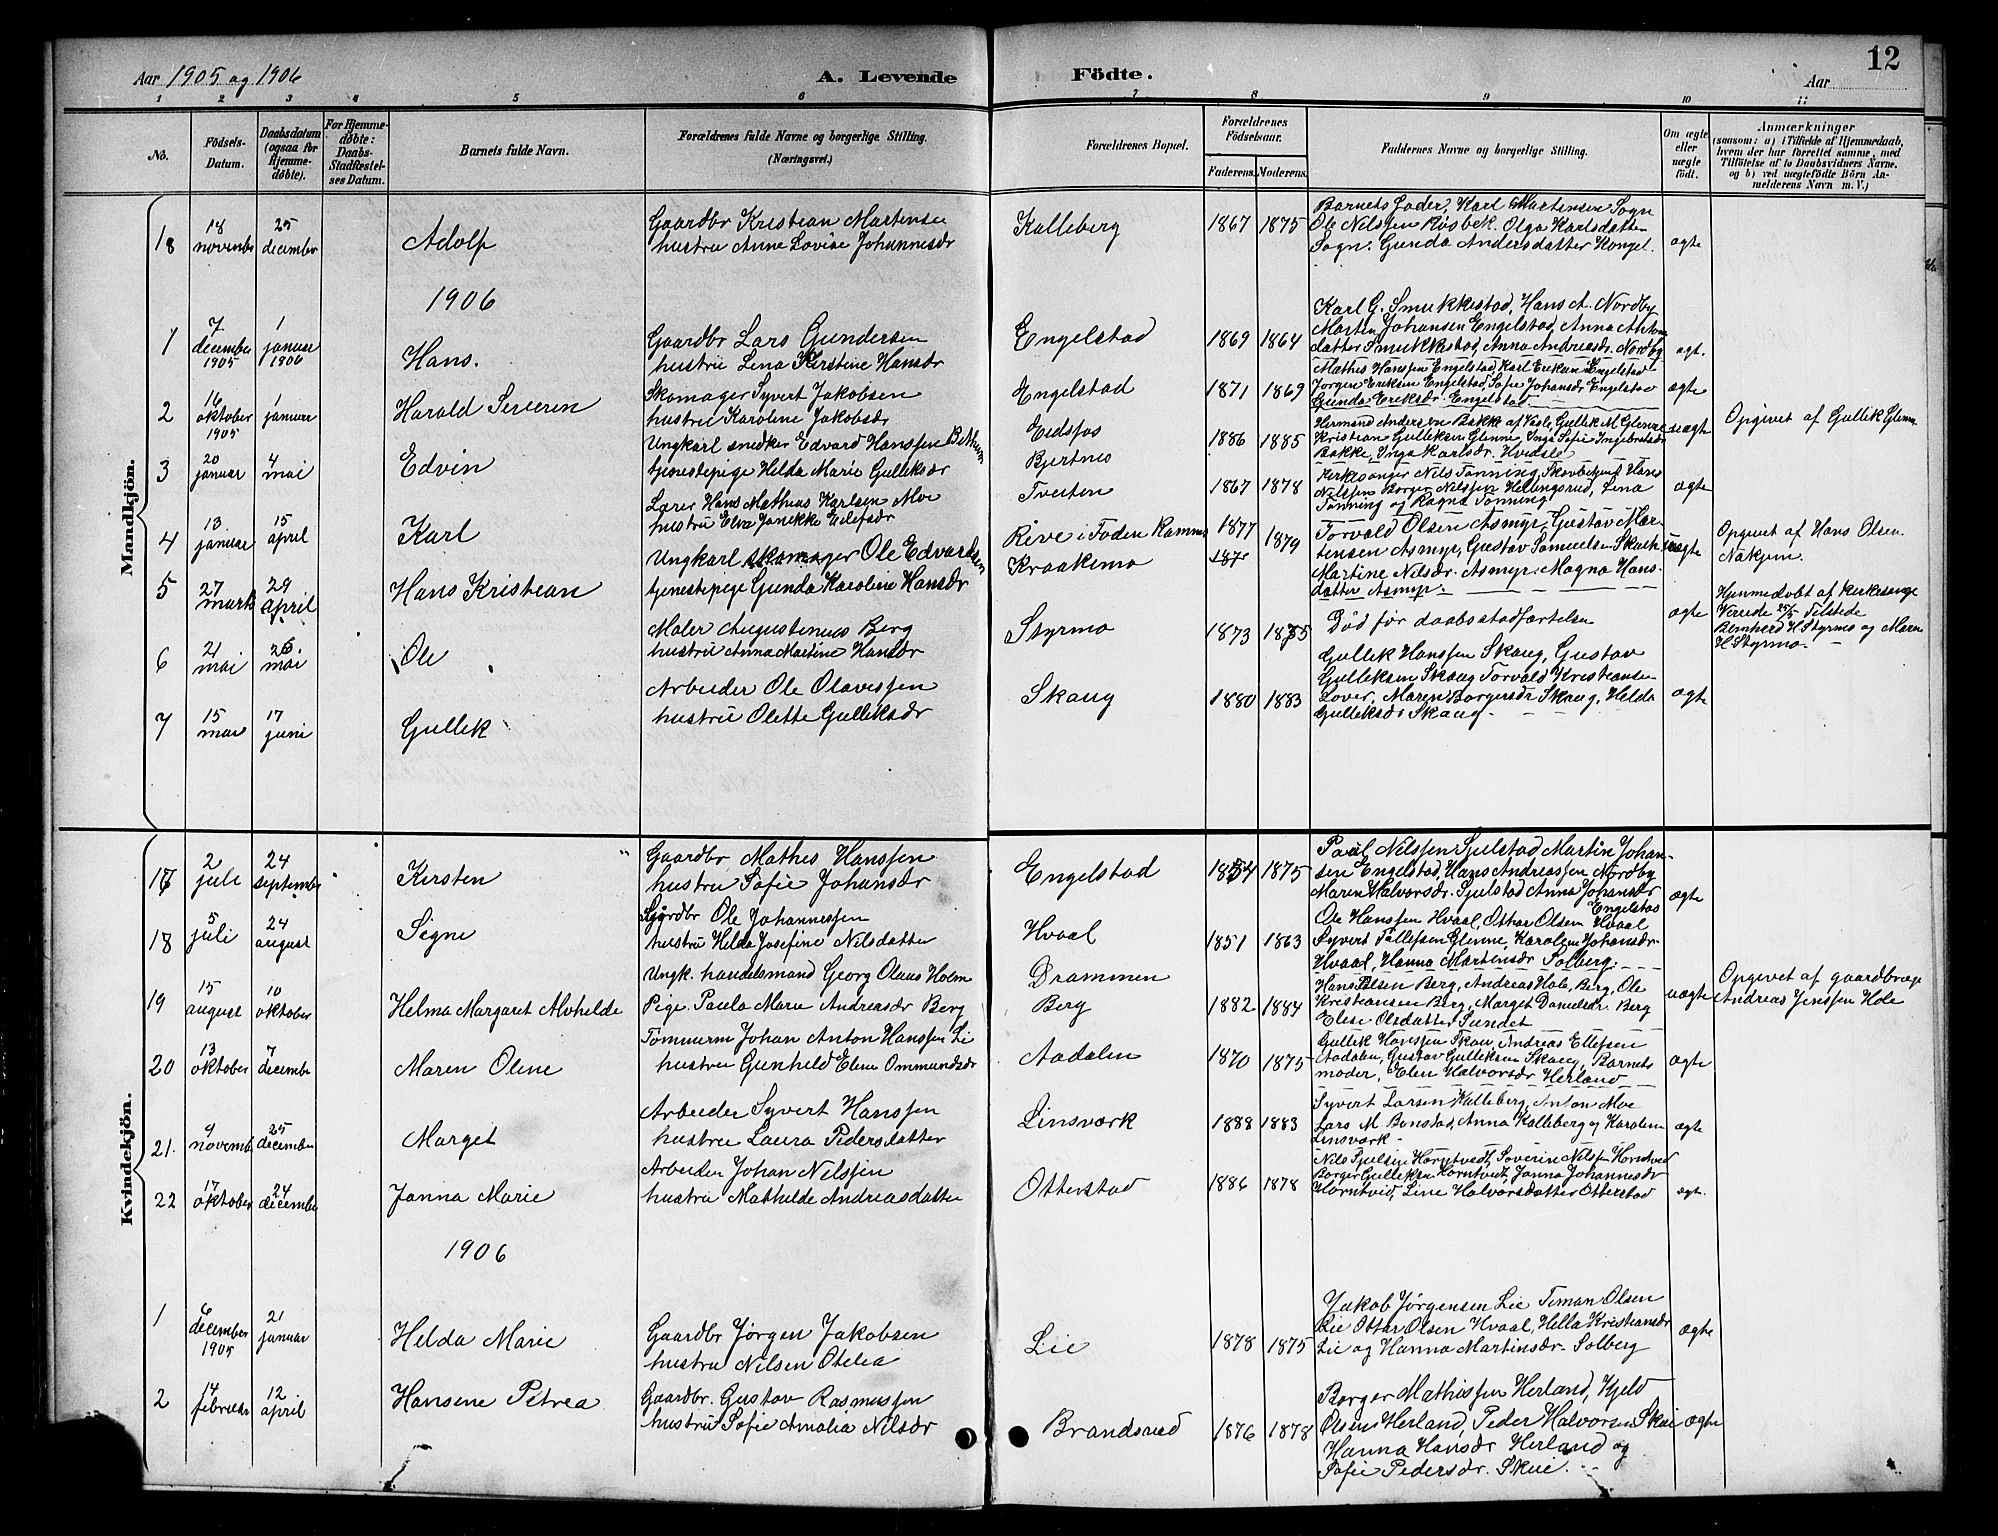 Aar 1905 og 1906
A. Levende Födte.
12
Aar
1 2 3 4 5 6 7 8 9 10 11
No.
Födsels-Datum.
Daabsdatum (ogsaa for Hjemmedöbte).
For Hjemmedöbte: Daabs-Stadfæstelses Datum.
Barnets fulde Navn.
Forældrenes fulde Navne og borgerlige Stilling.
(Næringsvei.)
Forældrenes Bopæl.
Forældrenes Födselsaar.
Faderens. Moderens.
Faddernes Navne og borgerlige Stilling.
Om ægte eller uægte födt.
Anmærkninger
(saasom: a) i Tilfælde af Hjemmedaab, hvem der har forrettet samme, med Tilföielse af to Daabsvidners Navne, og b) ved uægtefödte Börn Anmelderens Navn m. V.)
Mandkjön.
18
18 november
25 december
Adolf
Gaardbr Kristian Martensen
hustru Anne Lovise Johannesdr
Kalleberg
1867 1875
Barnets Fader, Karl Martensen Sogn
Ole Nilssen Røsbek. Olga Karlsdatter
Sogn. Gunda Andersdatter Kongel.
ægte
1906
1
7 december 1905
1 januar 1906
Hans.
Gaardbr Lars Gundersen
hustru Lena Kirstine Hansdr
Engelstad
1869 1864
Karl G. Smukkestad, Hans A. Nordby
Marten Johansen Engelstad, Anna Anton
datter Smukkestad, Anna Andreasdr. Nordby
ægt.
2
16 oktober 1905
1 januar
Harald Severin
Skomager Syvert Jakobsen
hustru Karolene Jakobsdr
Engelstad
1871 1869
Mathis Hanssen Engelstad, Karl Eriksen Engelstad
Jørgen Eriksen Engelstad, Sofie Johansdr Engelstad
Gunda Eriksdr. Engelstad.
ægte
3
20 januar
4 mai
Edvin
Ungkarl snedker Edvard Hanssen
tjenestepige Helda Marie Gulleksdr
Eidsfos
Bjertnes
1886 1885
Hermand Andersen Bakke af Vasle, Gullek M Glenne
Kristian Gulleksen Glenne, Inga Sofie Ingebretsdr
Bakke, Inga Karlsdr. Hvidsle
uægte
Opgivet af Gullek Glenne
4
13. januar
15 april
Karl
Lærer Hans Mathias Karlsen Moe
hustru Elva Janekke Eilefsdr
Tveiten
1867 1878
Kirkesanger Nils Tønning, Skovbetjent Hans
Nilssen Borger Nilssen Hellingsrud, Lina
Tønning og Ragna Tønning
ægte
5
27 marts
29 april
Hans Kristian
Ungkarl skomager Ole Edvardsen
tjenestepige Gunda Karolene Hansdr
Reve i Foden Ramnes
Kraakemo
1877 1879
Torvald Olsen Asmyr, Gustav Mar-
tensen Asmyr, Gustav Samuelsen
Martine Nilsdr. Asmyr. Magna Hans-
datter Asmyr.
uægte
Opgivet af Hans Olsen
Nakjem.
6
21 mai
26. mai
Ole
Maler Augustinius Berg
hustru Anna Martine Hansdr
Styrmo
1873 1875
Død før daabsstadfæstelsen
ægte
Hjemmedøbt af kirkesanger
25/5 Tilstede
Bernherd H Styrmo og Maren
H Styrmo.
7
15 mai
17 juni
Gullek
Arbeider Ole Olavessen
hustru Olette Gulleksdr
Skaug
1880 1883
Gullek Hanssen Skaug, Gustav
Gulleksen Skaug Torvald Kristiansen
Lover, Maren Borgersdr Skaug, Helda
Gulleksdr Skaug.
ægte
Kvindekjön.
17
2 juli
24 september
Kirsten
Gaardbr Mathis Hanssen
hustru Sofie Johansdr
Engelstad
1854 1875
Paul Nilssen Sjulstad Martin Johan-
sen Engelstad, Hans Andreassen Nordby
Maren Halvorsdr. Sjulstad Anna Johansdr
Engelstad
ægte
18
5 juli
24 august
Signe
Gaardbr Ole Johannessen
hustru Helda Josefine Nilsdatter
Hvaal
1851 1863
Ole Hanssen Hvaal, Othar Olsen Hvaal
Syvert Tollefsen Glenne, Karolen Johansdr.
Hvaal, Hanna Martensdr Solberg.
19
15 august
10 oktober
Helma Margaret Alvhelde
Ungk. handelsmand Georg Olaus Holm
Pige Paula Marie Andreasdr Berg
Drammen
Berg
1882 1884
Hans Pilsen Berg, Andreas Hole, Berg, Ole
Kristiansen Berg, Marget Danielsdr. Berg
Elese Olsdatter Sundet
uægte
Opgivet af gaardbruge
Andreas Jenssen Hole
20
13 oktober
7 december
Maren Olene
Tømmerm Johan Anton Hanssen Li
hustru Gunhild Elene Ommundsdr
Aadalen
1870 1875
Gullek Hanssen Skau, Andreas Ellefsen
Aadalen, Gustav Gulleksen Skaug, Barnets
moder, Elen Halvorsdr Herland
ægte
21.
9 novemb
25 december
Marget
Arbeider Syvert Hanssen
hustru Laura Pedersdatter
Linsværk
1888 1883
Syvert Larsen Kalleberg, Anton Moe
Lars M. Bonstad, Anna Kalleberg og Karolene
Linsværk.
ægte
22
17 oktober
24 december
Janna Marie
Arbeider Johan Nilssen
hustru Mathilde Andreasdatter
Otterstad
1886 1878
Nils Pjelsen Horntvedt, Soverin Nilsen Horntved
Borger Gulleksen Horntvedt, Janna Johannesdr
Horntvid, Line Halvorsdatter Otterstad
ægt.
1906
1
6 december 1905
21 januar
Helda Marie
Gaardbr Jørgen Jakobsen
hustru Nilsen Otelia
Lie
1878 1875
Jakob Jørgensen Lie Timan Olsen
Lie Ottar Olsen Hvaal, Hella Kristiansdr
Lie og Hanna Martinsdr. Solberg
ægte
2
14 februar
12 april
Hansene Petrea
Gaardbr. Gustav Rasmussen
hustru Sofie Amalia Nilsdr
Brandsrud
1876 1878
Borger Mathissen Herland, Kjeld
Olsen Herland, Peder Halvorsen Skui
Hanna Hansdr Herland og
Sofie Pedersdr. Skui.
ægte